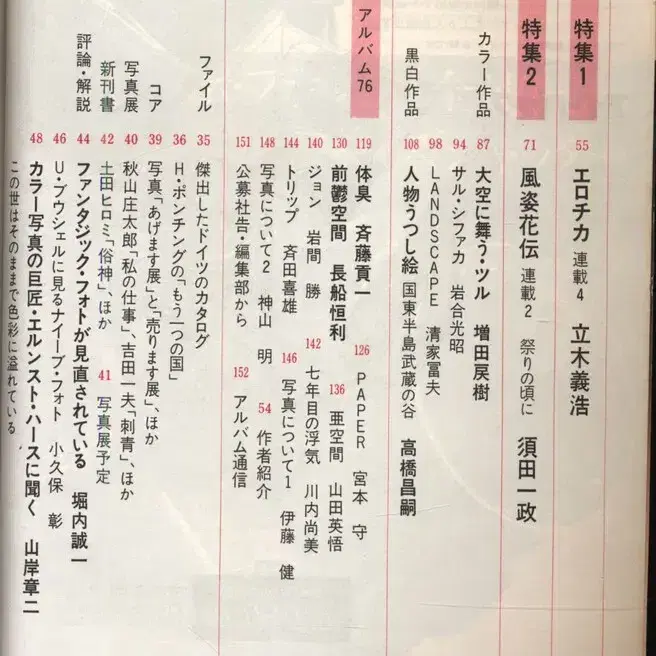 特集1
55 エロチカ 連載4 立木義浩
特集2
71 風姿花伝 連載2 祭りの頃に 須田一政
カラー作品
87 大空に舞う・ツル 増田戻樹
94 サル・シファカ 岩合光昭
98 LANDSCAPE 清家冨夫
黒白作品
108 人物うつし絵 国東半島武蔵の谷 高橋昌嗣
アルバム76
119 体臭 斉藤貢一 126 PAPER 宮本 守
130 前鬱空間 長船恒利 136 亜空間 山田英悟
140 ジョン 岩間 勝 142 七年目の浮気 川内尚美
144 トリップ 斉田喜雄 146 写真について1 伊藤 健
148 写真について2 神山 明 54 作者紹介
151 公募社告・編集部から 152 アルバム通信
ファイル
35 傑出したドイツのカタログ
36 H・ポンチングの「もう一つの国」
コア
39 写真「あげます展」と「売ります展」、ほか
写真展
40 秋山庄太郎「私の仕事」、吉田一夫「刺青」、ほか
新刊書
42 土田ヒロミ「俗神」、ほか 41 写真展予定
評論・解説
44 ファンタジック・フォトが見直されている 堀内誠一
46 U・ブウシェルに見るナイーブ・フォト 小久保 彰
48 カラー写真の巨匠・エルンスト・ハースに聞く 山岸章二
この世はそのままで色彩に溢れている